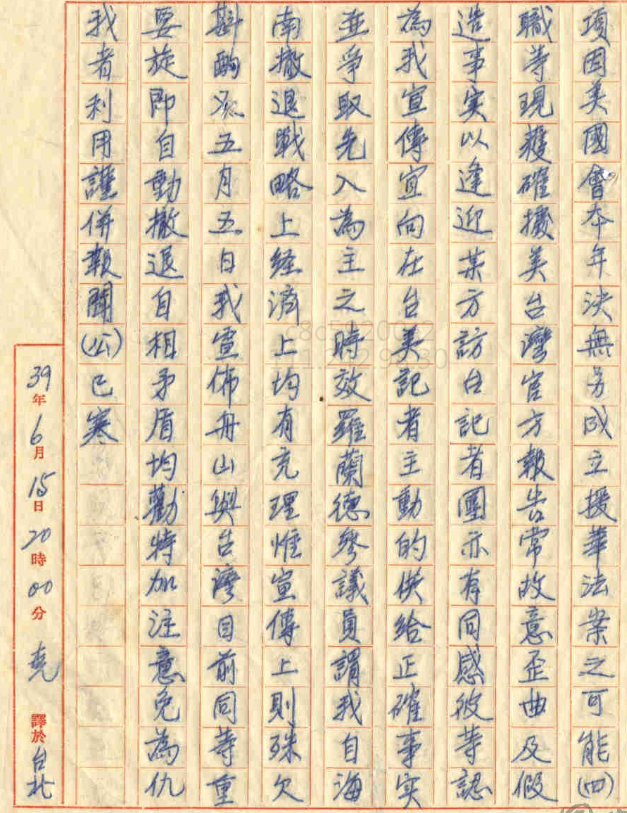 項因美國會本年決無另成立援華法案之可能(四)
職等現獲確據美台灣官方報告常故意歪曲及假
造事实以逢迎某方訪台記者團亦有同感彼等認
為我宣傳宜向在台美記者主動的供給正確事实
並爭取先入為主之時效羅蘭德參議員謂我自海
南撤退戰略上経濟上均有充理惟宣傳上則殊欠
斟酌况五月五日我宣佈舟山與台灣目前同等重
要旋即自動撤退自相矛盾均勸特加注意免為仇
我者利用謹併報聞(公)巳寒
39年6月15日20時00分 譯於台北